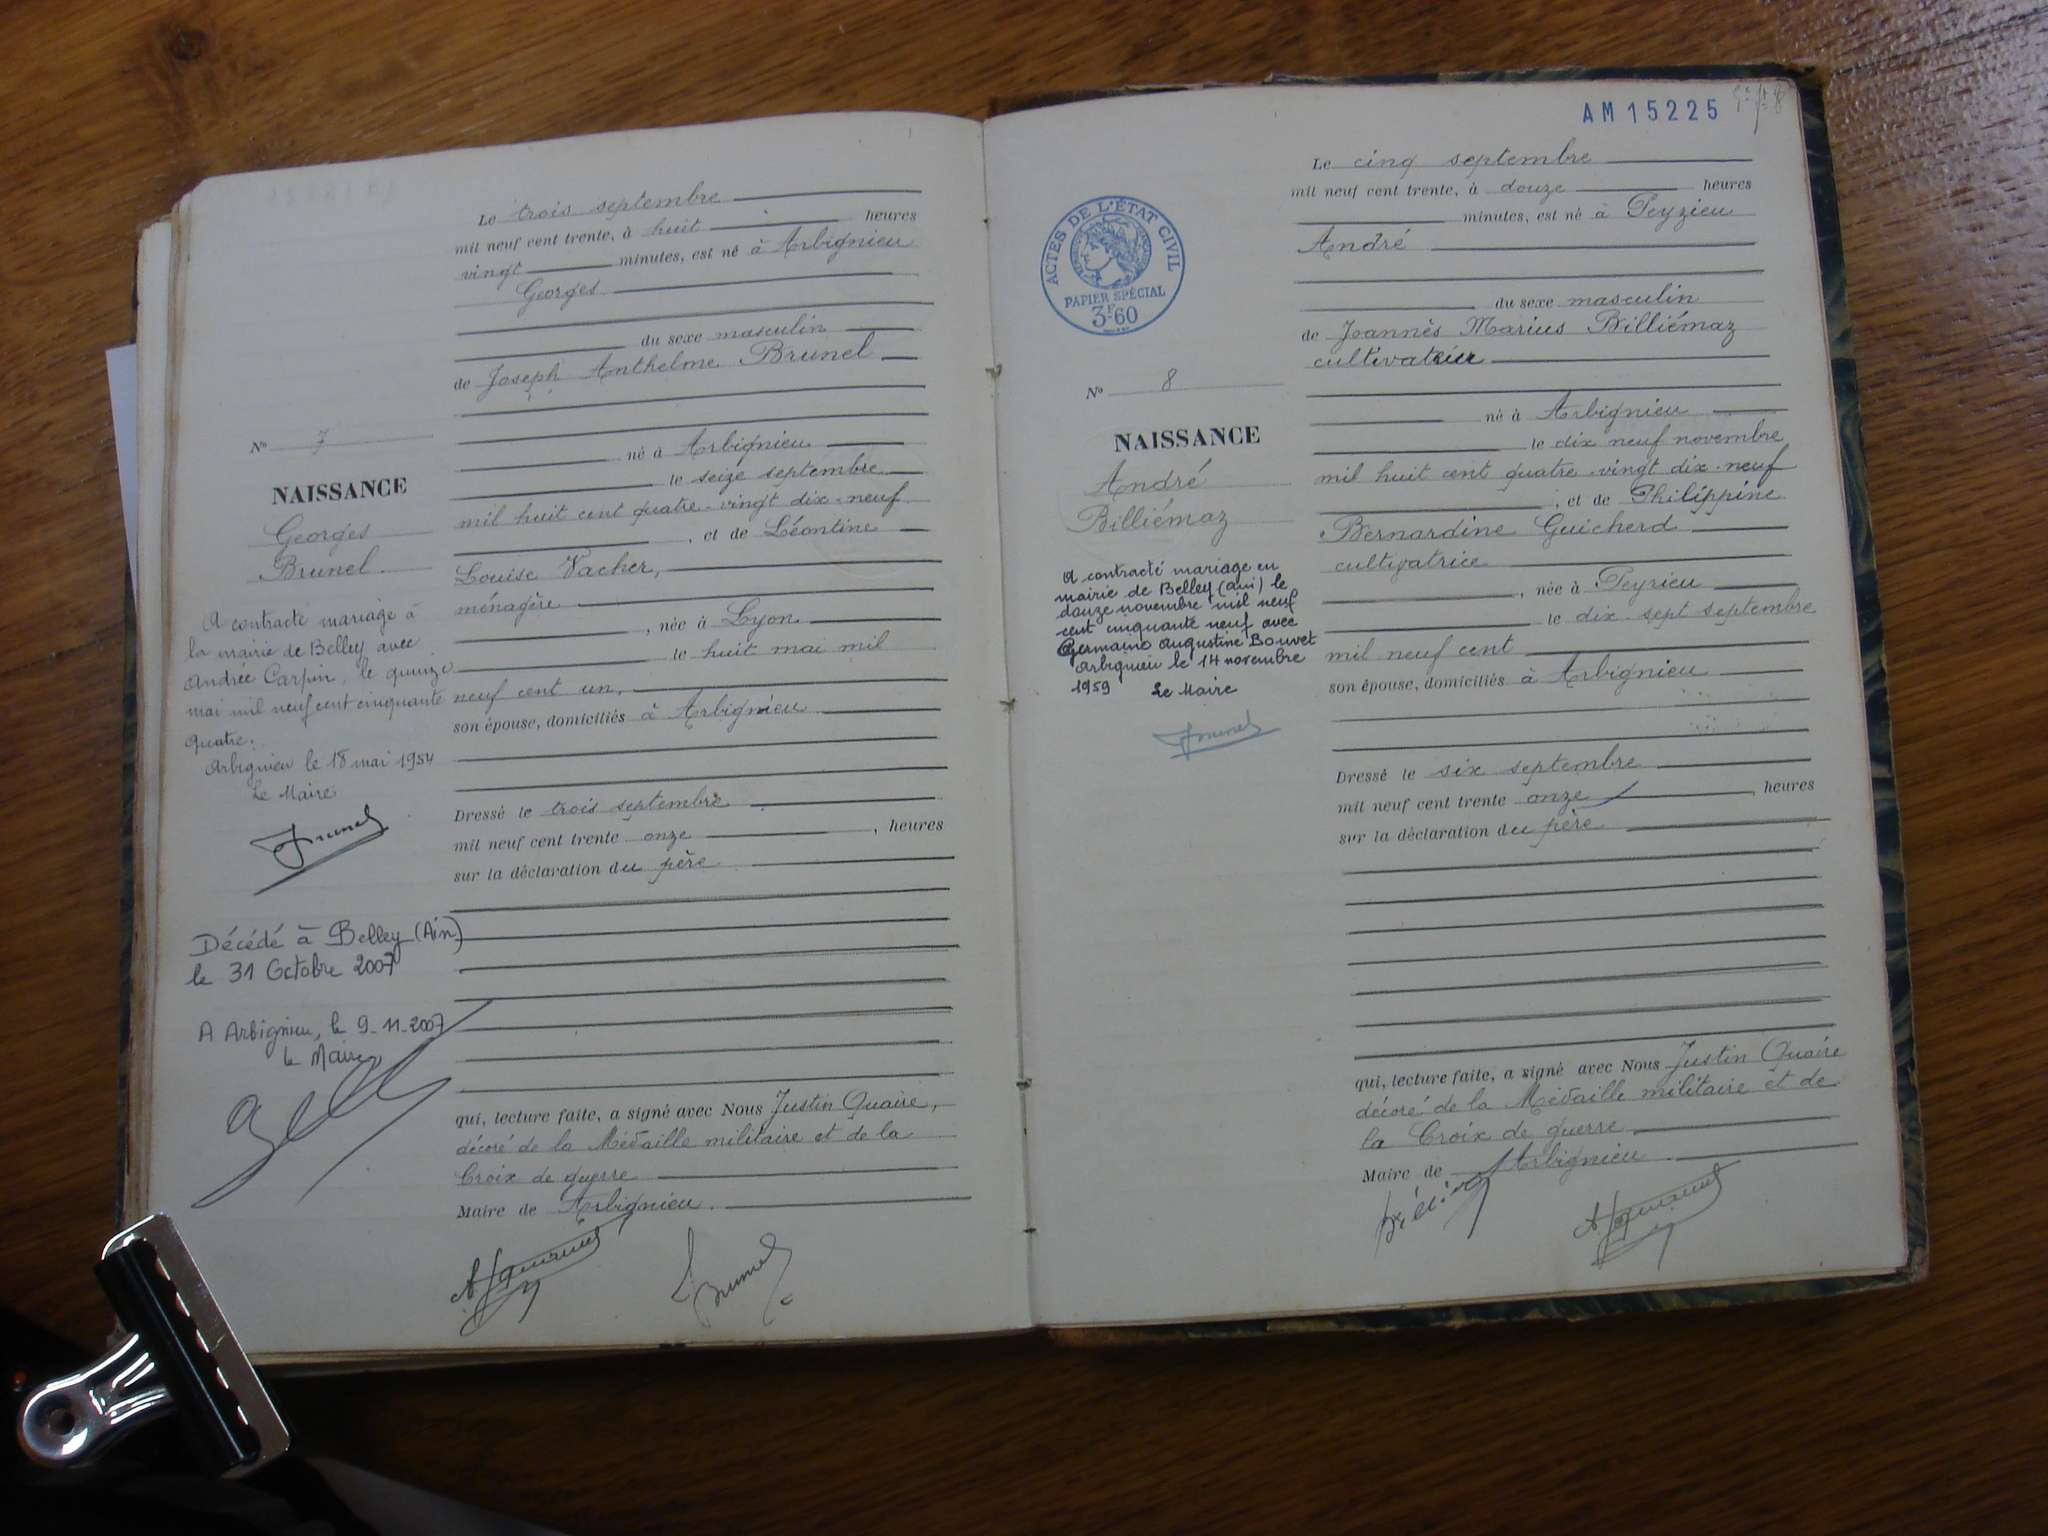 Le trois septembre
mil neuf cent trente, à huit heures
vingt minutes, est né à Arbignieu
Georges
du sexe masculin
de Joseph Anthelme Brunel
né à Arbignieu
le seize septembre
mil huit cent quatre-vingt dix-neuf
, et de Léontine
Louise Vacher,
ménagère
, née à Lyon
le huit mai mil
neuf cent un,
son épouse, domiciliés à Arbignieu
Dressé le trois septembre
mil neuf cent trente onze , heures
sur la déclaration du père
qui, lecture faite, a signé avec Nous Justin Quaire,
décoré de la Médaille militaire et de la
Croix de guerre
Maire de Arbignieu.
Brunel
N° 7
NAISSANCE
Georges
Brunel
A contracté mariage à
la mairie de Belley avec
Andrée Carpin, le quinze
mai mil neuf cent cinquante
quatre.
Arbignieu le 18 mai 1954
Le Maire
Brunel
Décédé à Belley (Ain)
le 31 Octobre 2007
A Arbignieu, le 9-11-2007
le Maire
AM 15225
Le cinq septembre
mil neuf cent trente, à douze heures
minutes, est né à Peyzieu
André
du sexe masculin
de Joannès Marius Billiémaz
cultivateur
né à Arbignieu
le dix neuf novembre
mil huit cent quatre-vingt dix-neuf
, et de Philippine
Bernardine Guicherd
cultivatrice
, née à Peyrieu
le dix-sept septembre
mil neuf cent
son épouse, domiciliés à Arbignieu
Dressé le six septembre
mil neuf cent trente onze , heures
sur la déclaration du père
qui, lecture faite, a signé avec Nous Justin Quaire
décoré de la Médaille militaire et de
la Croix de guerre
Maire de Arbignieu
ACTES DE L'ÉTAT CIVIL
PAPIER SPÉCIAL
3F60
N° 8
NAISSANCE
André
Billiémaz
A contracté mariage en
mairie de Belley (ain) le
douze novembre mil neuf
cent cinquante neuf avec
Germaine Augustine Bouvet
Arbignieu le 14 novembre
1959 Le Maire
Brunel